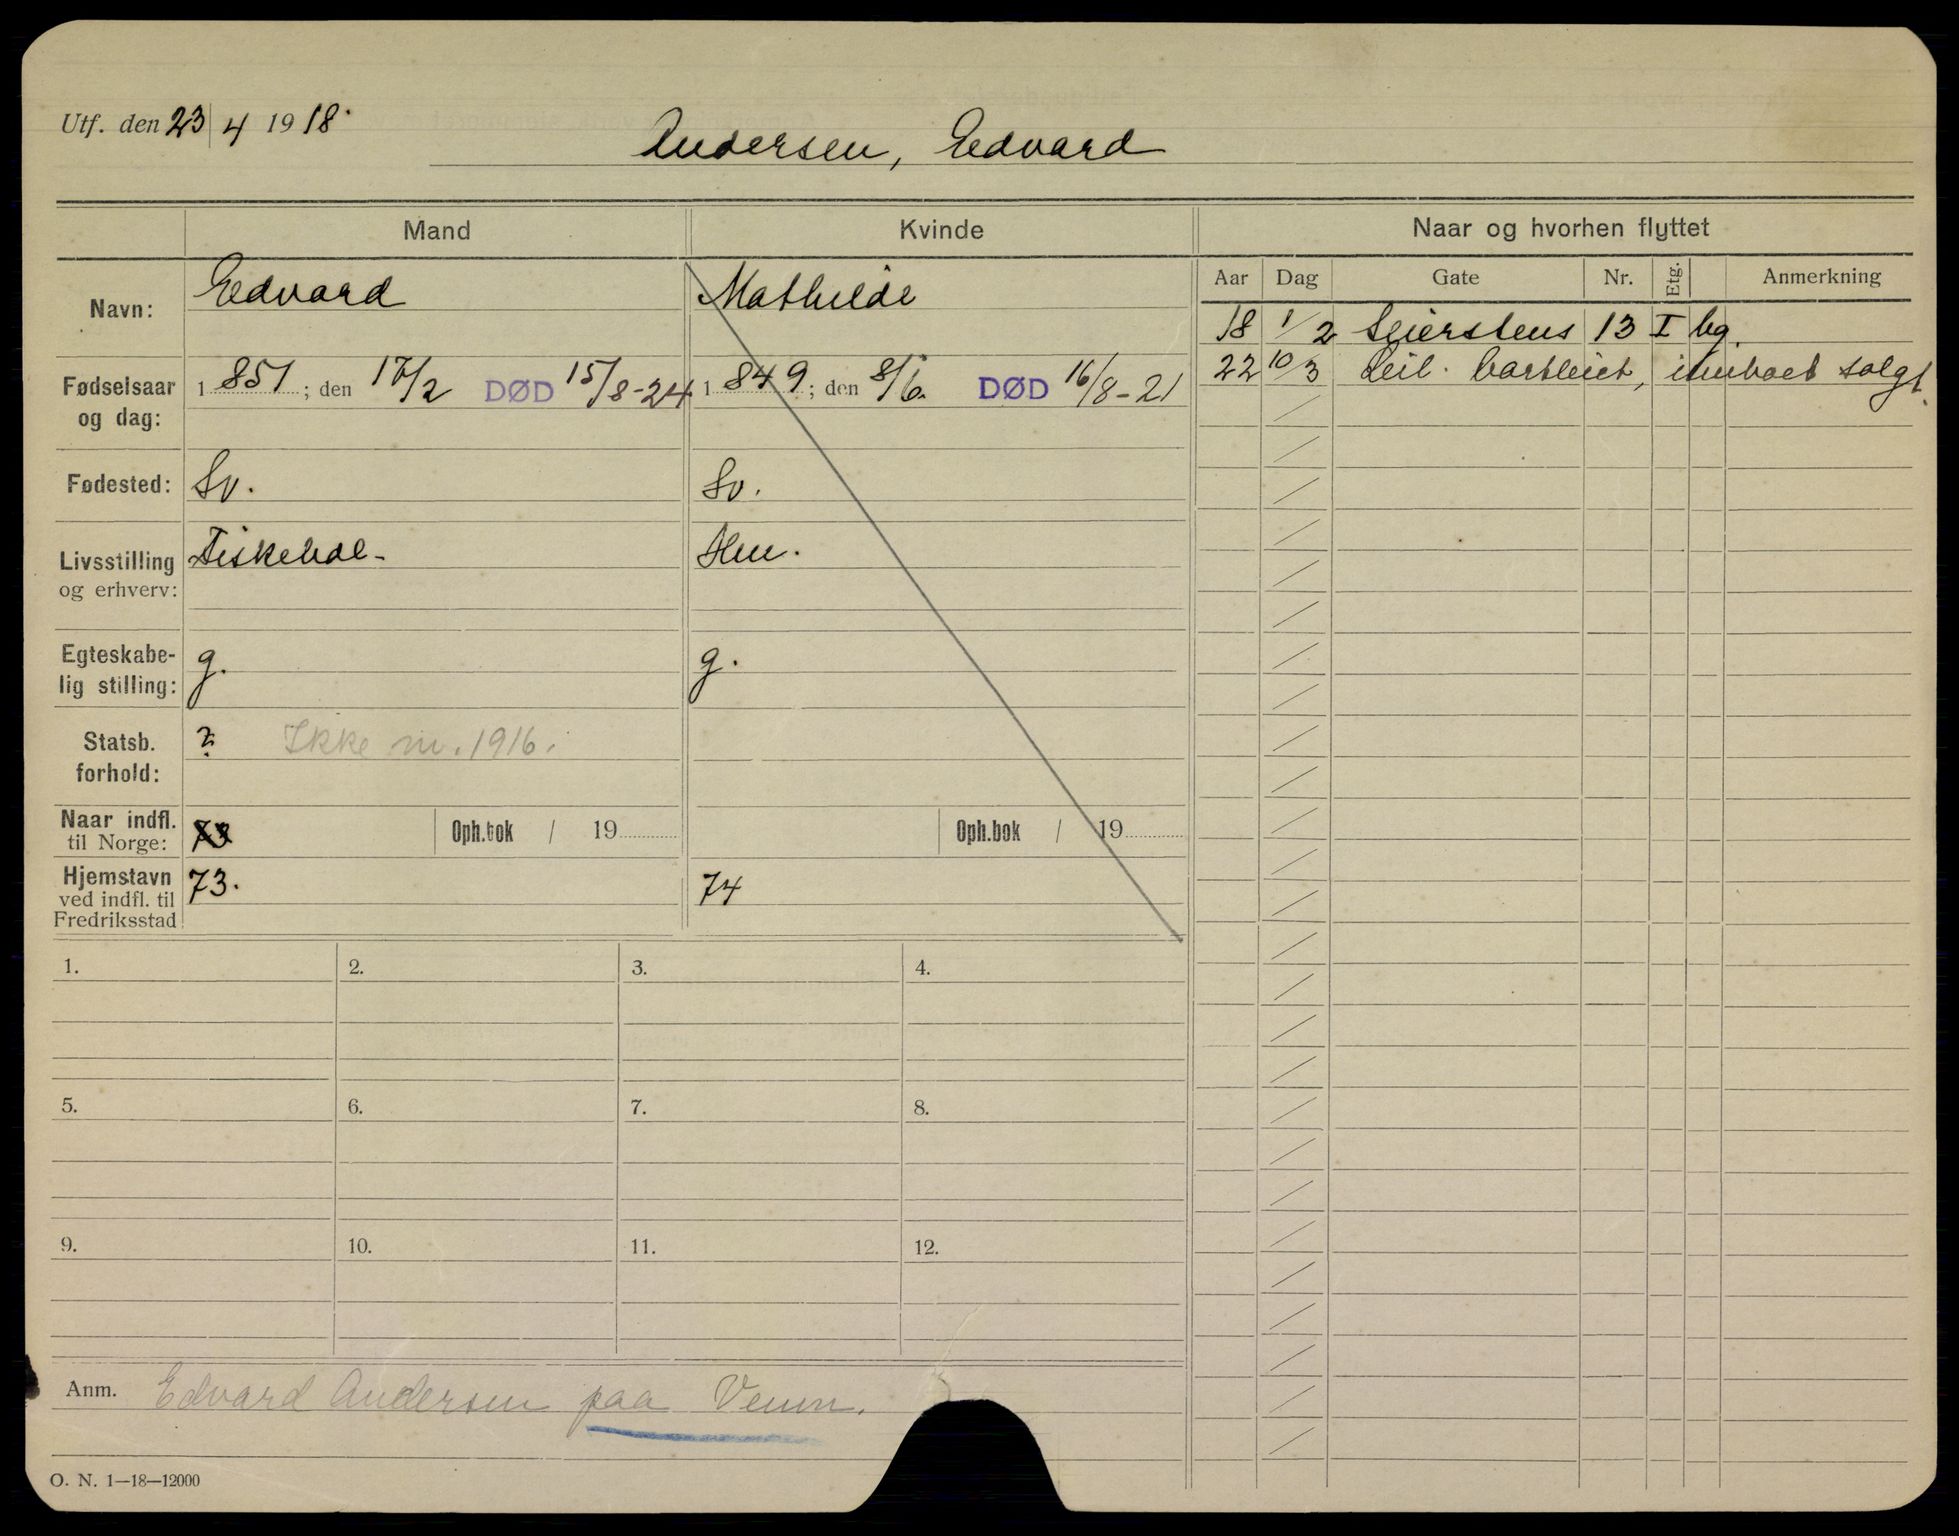 Utf. den 23/4 1918.
Andersen, Edvard
Mand
Kvinde
Naar og hvorhen flyttet
Aar Dag Gate Nr. Etg. Anmerkning
Navn: Edvard Mathilde
18 1/2 Seierstens 13 I bg.
22 10/3 Leil. bortleiet, innboet solgt.
Fødselsaar og dag: 1851; den 17/2 DØD 15/8-24 1849; den 8/6. DØD 16/8-21
Fødested: Sv. Sv.
Livsstilling og erhverv: Fiskehdl- Hu.
Egteskabe-
lig stilling: g. g.
Statsb. forhold: ? Ikke m. 1916.
Naar indfl. til Norge: 73 Oph.bok / 19 Oph.bok / 19
Hjemstavn ved indfl. til Fredriksstad 73. 74
1. 2. 3. 4.
5. 6. 7. 8.
9. 10. 11. 12.
Anm. Edvard Andersen paa Veum.
O. N. 1—18—12000